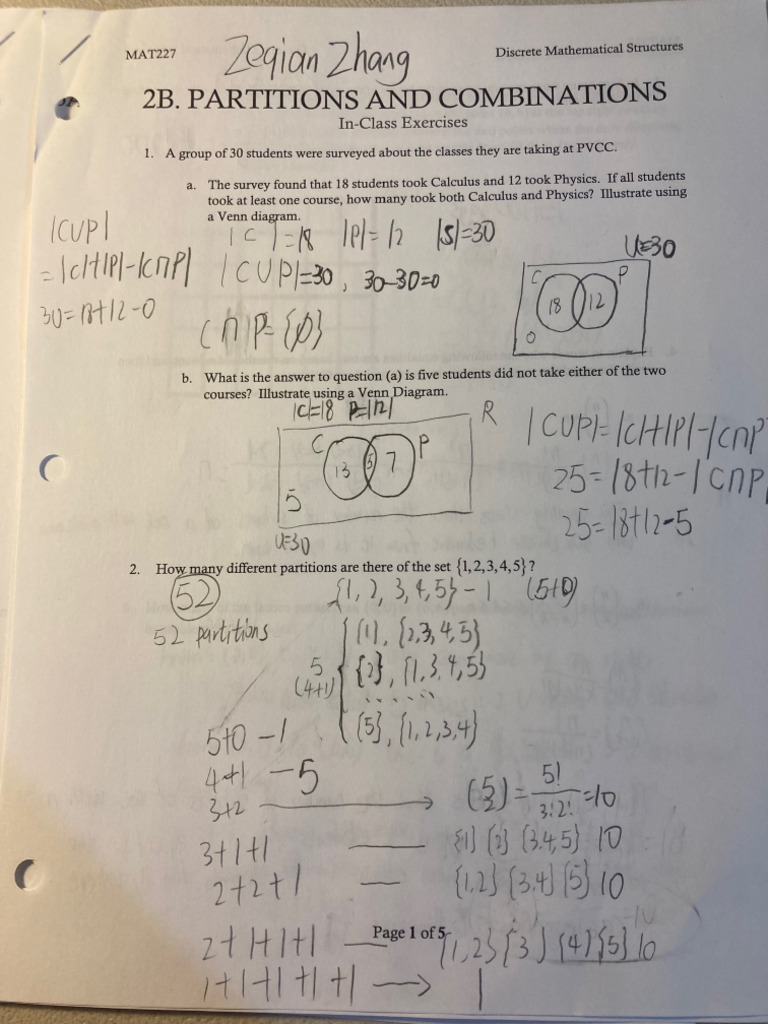 MAT227
Zeqian Zhang
Discrete Mathematical Structures
2B. PARTITIONS AND COMBINATIONS
In-Class Exercises
1. A group of 30 students were surveyed about the classes they are taking at PVCC.
a. The survey found that 18 students took Calculus and 12 took Physics. If all students
took at least one course, how many took both Calculus and Physics? Illustrate using
a Venn diagram.
|C|=18 |P|=12 |S|=30
|C∪P|
=|C|+|P|-|C∩P|
30=18+12-0
|C∪P|=30, 30-30=0
C∩P={∅}
U=30
C P
18 12
0
b. What is the answer to question (a) is five students did not take either of the two
courses? Illustrate using a Venn Diagram.
|C|=18 P=|12|
R
C P
13 5 7
5
U=30
|C∪P|=|C|+|P|-|C∩P
25=18+12-|C∩P|
25=18+12-5
2. How many different partitions are there of the set {1,2,3,4,5}?
52
52 partitions
{1, 2, 3, 4, 5} - 1 (5+0)
5
(4+1)
{1}, {2,3,4,5}
{2}, {1,3,4,5}
......
{5}, {1,2,3,4}
5+0 - 1
4+1 - 5
3+2 → (5 2) = 5!/3!2! = 10
3+1+1 — {1} {2} {3,4,5} 10
2+2+1 — {1,2} {3,4} {5} 10
2+1+1+1 — {1,2} {3} {4} {5} 10
Page 1 of 5
1+1+1+1+1 → 1